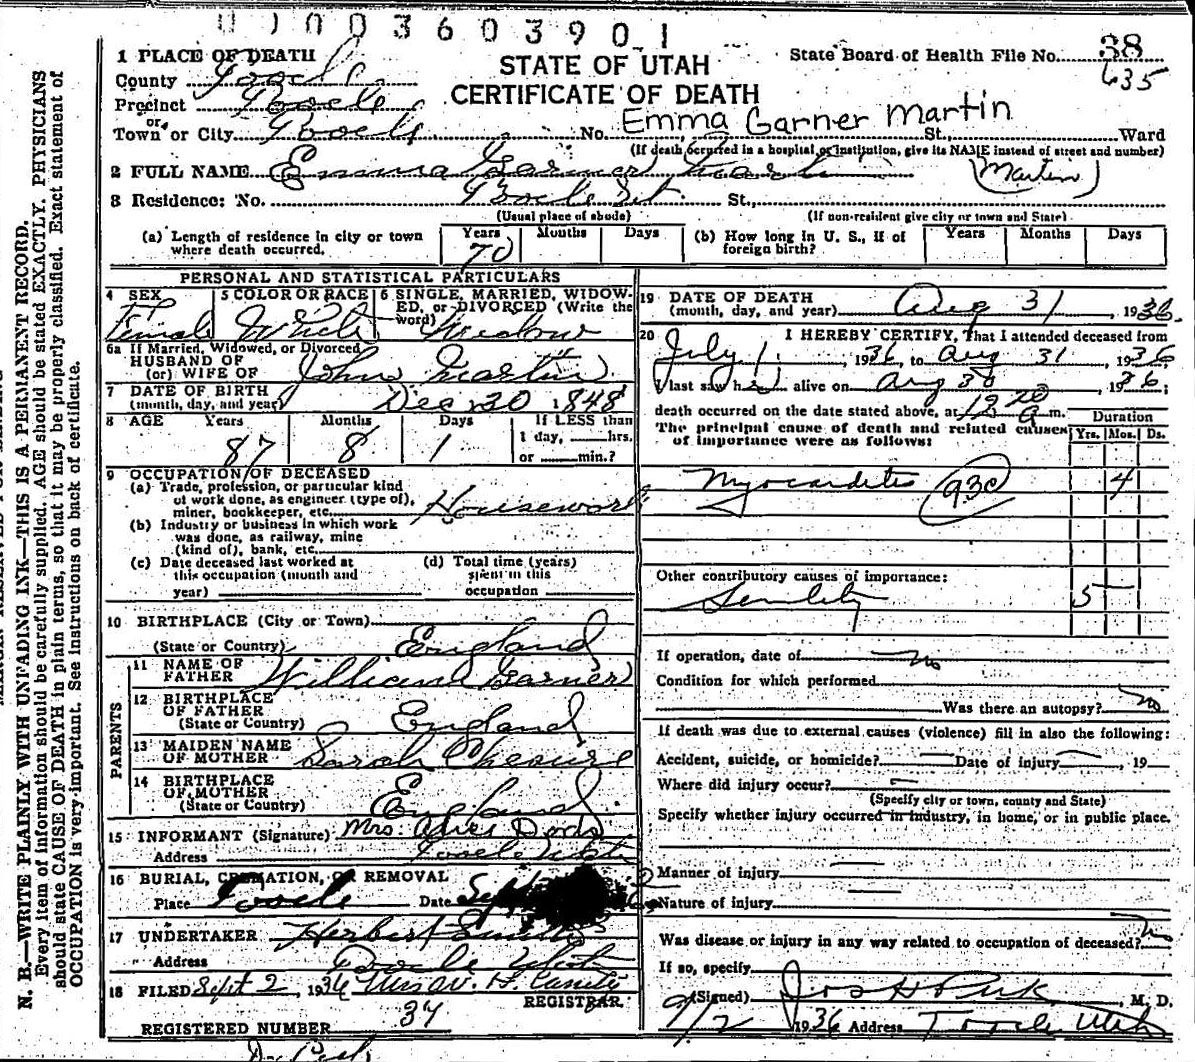 0 1 0 0 3 6 0 3 9 0 1
1 PLACE OF DEATH
County Tooele
Precinct Tooele
or
Town or City Tooele No. St. Ward
STATE OF UTAH
CERTIFICATE OF DEATH
State Board of Health File No. 38
635
Emma Garner Martin
(If death occurred in a hospital or institution, give its NAME instead of street and number)
2 FULL NAME Emma Garner Martin (Martin)
3 Residence: No. Tooele Ut. St.,
(Usual place of abode) (If non-resident give city or town and State)
(a) Length of residence in city or town where death occurred. Years 70 Months Days
(b) How long in U. S., if of foreign birth? Years Months Days
PERSONAL AND STATISTICAL PARTICULARS
4 SEX Female
5 COLOR OR RACE White
6 SINGLE, MARRIED, WIDOWED, or DIVORCED (Write the word) Widow
6a If Married, Widowed, or Divorced
HUSBAND OF
(or) WIFE OF John Martin
7 DATE OF BIRTH
(month, day, and year) Dec 30 1848
8 AGE Years 87 Months 8 Days 1
If LESS than
1 day, hrs.
or min.?
9 OCCUPATION OF DECEASED
(a) Trade, profession, or particular kind
of work done, as engineer (type of),
miner, bookkeeper, etc. Housework
(b) Industry or business in which work
was done, as railway, mine
(kind of), bank, etc.
(c) Date deceased last worked at
this occupation (month and
year)
(d) Total time (years)
spent in this
occupation
10 BIRTHPLACE (City or Town)
(State or Country) England
PARENTS
11 NAME OF
FATHER William Garner
12 BIRTHPLACE
OF FATHER
(State or Country) England
13 MAIDEN NAME
OF MOTHER Sarah
14 BIRTHPLACE
OF MOTHER
(State or Country) England
15 INFORMANT (Signature) Mrs. Alice Dods
Address Tooele Utah
16 BURIAL, CREMATION, OR REMOVAL
Place Tooele Date Sept
17 UNDERTAKER Herbert
Address Tooele Utah
18 FILED Sept 2, 1936
REGISTRAR.
REGISTERED NUMBER 34
19 DATE OF DEATH
(month, day, and year) Aug 31, 1936.
20 I HEREBY CERTIFY, That I attended deceased from
July 1, 1936, to Aug 31 1936
I last saw her alive on Aug 30, 1936;
death occurred on the date stated above, at 12 20 a m.
The principal cause of death and related causes
of importance were as follows:
Duration
Yrs. Mos. Ds.
Myocarditis 93c 4
Other contributory causes of importance:
Senility 5
If operation, date of no
Condition for which performed
Was there an autopsy? no
If death was due to external causes (violence) fill in also the following:
Accident, suicide, or homicide? Date of injury, 19
Where did injury occur?
(Specify city or town, county and State)
Specify whether injury occurred in industry, in home, or in public place.
Manner of injury
Nature of injury
Was disease or injury in any way related to occupation of deceased? no
If so, specify
(Signed) Jos H Peck, M. D.
9/2 1936 Address Tooele Utah
N. B.—WRITE PLAINLY WITH UNFADING INK—THIS IS A PERMANENT RECORD.
Every item of information should be carefully supplied. AGE should be stated EXACTLY. PHYSICIANS
should state CAUSE OF DEATH in plain terms, so that it may be properly classified. Exact statement of
OCCUPATION is very important. See instructions on back of certificate.